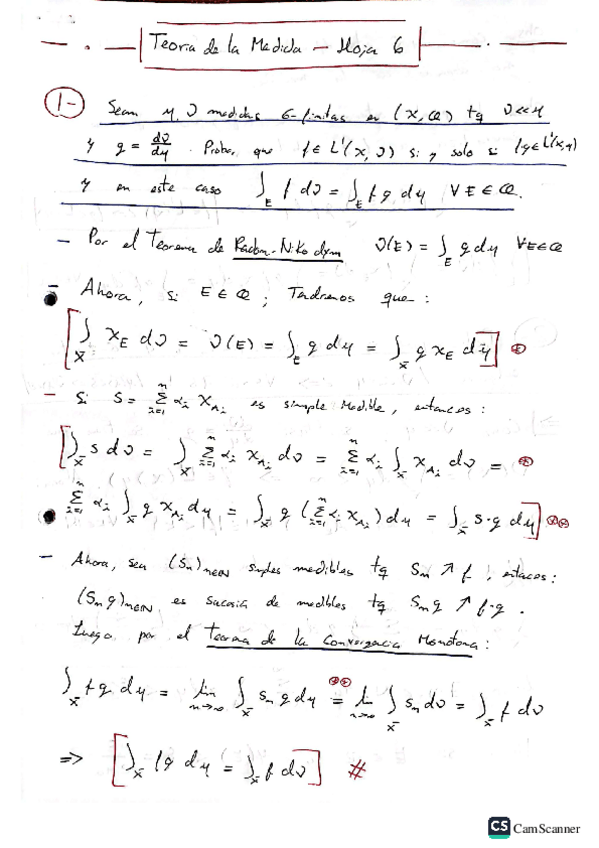 Teoría de la Medida - Hoja 6
1- Sean μ, ν medidas σ-finitas en (X, 𝒜) tq ν<<μ
y g = dν/dμ. Probar que f ∈ L¹(X, ν) si y solo si fg ∈ L¹(X, μ)
y en este caso ∫_E f dν = ∫_E f g dμ ∀ E ∈ 𝒜.
- Por el Teorema de Radon-Nikodym ν(E) = ∫_E g dμ ∀E∈𝒜
- Ahora, si E ∈ 𝒜; Tendremos que:
[∫_X χ_E dν = ν(E) = ∫_E g dμ = ∫_X g χ_E dμ] ⊛
- Si S = Σ_{i=1}^n α_i χ_{A_i} es simple medible, entonces:
[∫_X s dν = ∫_X Σ_{i=1}^n α_i χ_{A_i} dν = Σ_{i=1}^n α_i ∫_X χ_{A_i} dν = ⊛
Σ_{i=1}^n α_i ∫_X g χ_{A_i} dμ = ∫_X g (Σ_{i=1}^n α_i χ_{A_i}) dμ = ∫_X s·g dμ] ⊛⊛
- Ahora, sea (S_n)_{n∈ℕ} simples medibles tq S_n ↗ f, entonces:
(S_n g)_{n∈ℕ} es sucesión de medibles tq S_n g ↗ f·g.
Luego por el Teorema de la Convergencia Monótona:
∫_X f g dμ = lim_{n→∞} ∫_X s_n g dμ =^{⊛⊛} lim_{n→∞} ∫_X s_n dν = ∫_X f dν
=> [∫_X f g dμ = ∫_X f dν] #
CS CamScanner